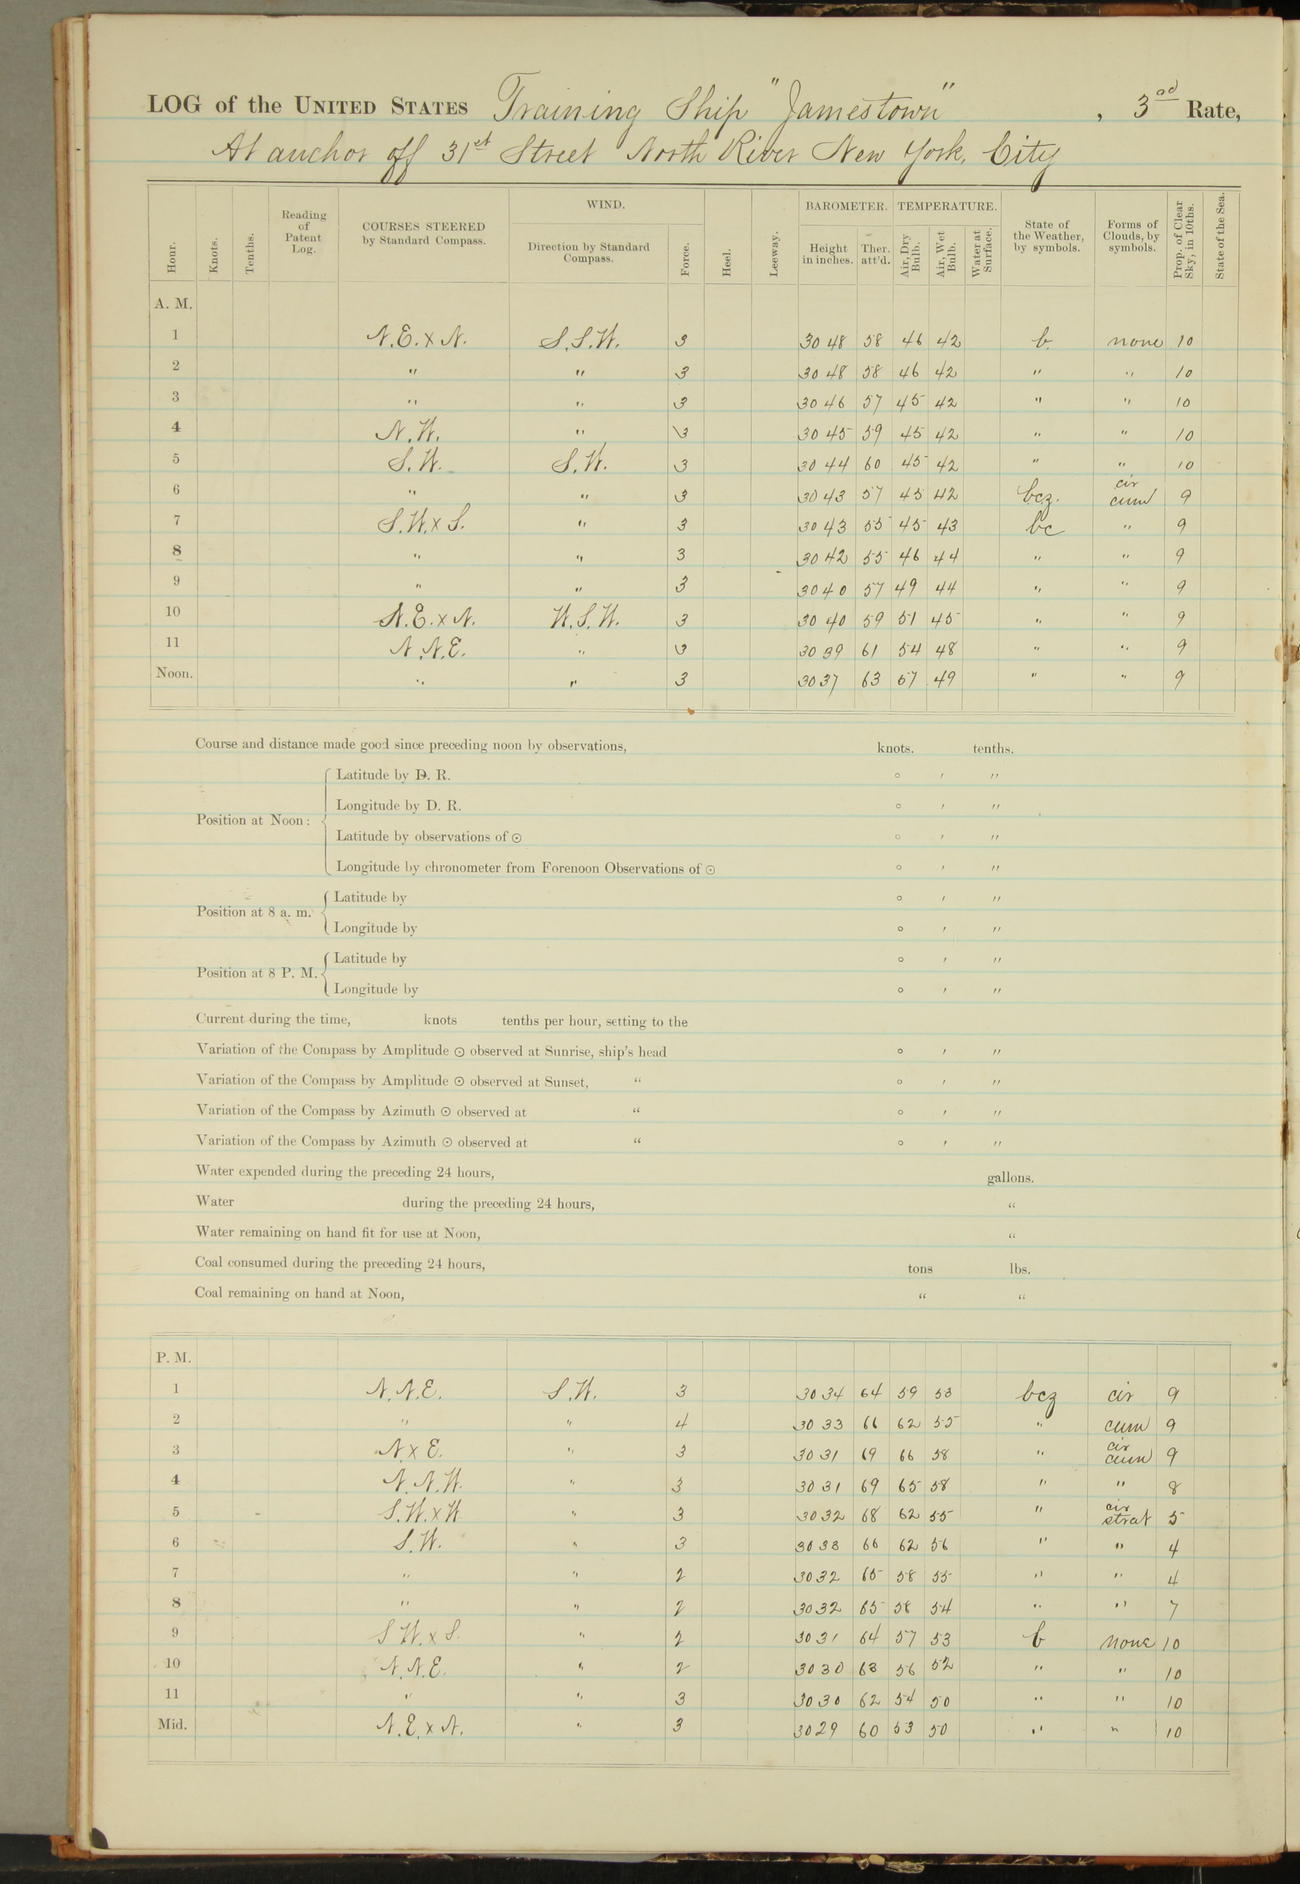 LOG of the UNITED STATES Training Ship "Jamestown", 3rd Rate,
At anchor off 31st Street North River New York, City
Hour. Knots. Tenths. Reading of Patent Log. COURSES STEERED by Standard Compass. WIND. Direction by Standard Compass. Force. Heel. Leeway. BAROMETER. Height in inches. Ther. att'd. TEMPERATURE. Air, Dry Bulb. Air, Wet Bulb. Water at Surface. State of the Weather, by symbols. Forms of Clouds, by symbols. Prop. of Clear Sky, in 10ths. State of the Sea.
A. M.
1 N.E. x N. S.S.W. 3 30 48 58 46 42 b. none 10
2 " " 3 30 48 58 46 42 " " 10
3 " " 3 30 46 57 45 42 " " 10
4 N.W. " 3 30 45 59 45 42 " " 10
5 S.W. S.W. 3 30 44 60 45 42 " " 10
6 " " 3 30 43 57 45 42 bcz. cir cum 9
7 S.W. x S. " 3 30 43 55 45 43 bc " 9
8 " " 3 30 42 55 46 44 " " 9
9 " " 3 30 40 57 49 44 " " 9
10 N.E. x N. W.S.W. 3 30 40 59 51 45 " " 9
11 N.N.E. " 3 30 39 61 54 48 " " 9
Noon. " " 3 30 37 63 57 49 " " 9
Course and distance made good since preceding noon by observations, knots. tenths.
Latitude by D. R. ° ′ ″
Longitude by D. R. ° ′ ″
Position at Noon:
Latitude by observations of ☉ ° ′ ″
Longitude by chronometer from Forenoon Observations of ☉ ° ′ ″
Latitude by ° ′ ″
Position at 8 a. m.
Longitude by ° ′ ″
Latitude by ° ′ ″
Position at 8 P. M.
Longitude by ° ′ ″
Current during the time, knots tenths per hour, setting to the
Variation of the Compass by Amplitude ☉ observed at Sunrise, ship's head ° ′ ″
Variation of the Compass by Amplitude ☉ observed at Sunset, " ° ′ ″
Variation of the Compass by Azimuth ☉ observed at " ° ′ ″
Variation of the Compass by Azimuth ☉ observed at " ° ′ ″
Water expended during the preceding 24 hours, gallons.
Water during the preceding 24 hours, "
Water remaining on hand fit for use at Noon, "
Coal consumed during the preceding 24 hours, tons lbs.
Coal remaining on hand at Noon, " "
P. M.
1 N.N.E. S.W. 3 30 34 64 59 53 bcz cir 9
2 " " 4 30 33 66 62 55 " cum 9
3 N x E. " 3 30 31 69 66 58 " cir cum 9
4 N.N.W. " 3 30 31 69 65 58 " " 8
5 S.W. x W " 3 30 32 68 62 55 " cir strat 5
6 S.W. " 3 30 33 66 62 56 " " 4
7 " " 2 30 32 65 58 55 " " 4
8 " " 2 30 32 65 58 54 " " 7
9 S W. x S. " 2 30 31 64 57 53 b none 10
10 N.N.E. " 2 30 30 63 56 52 " " 10
11 " " 3 30 30 62 54 50 " " 10
Mid. N.E. x N. " 3 30 29 60 53 50 " " 10